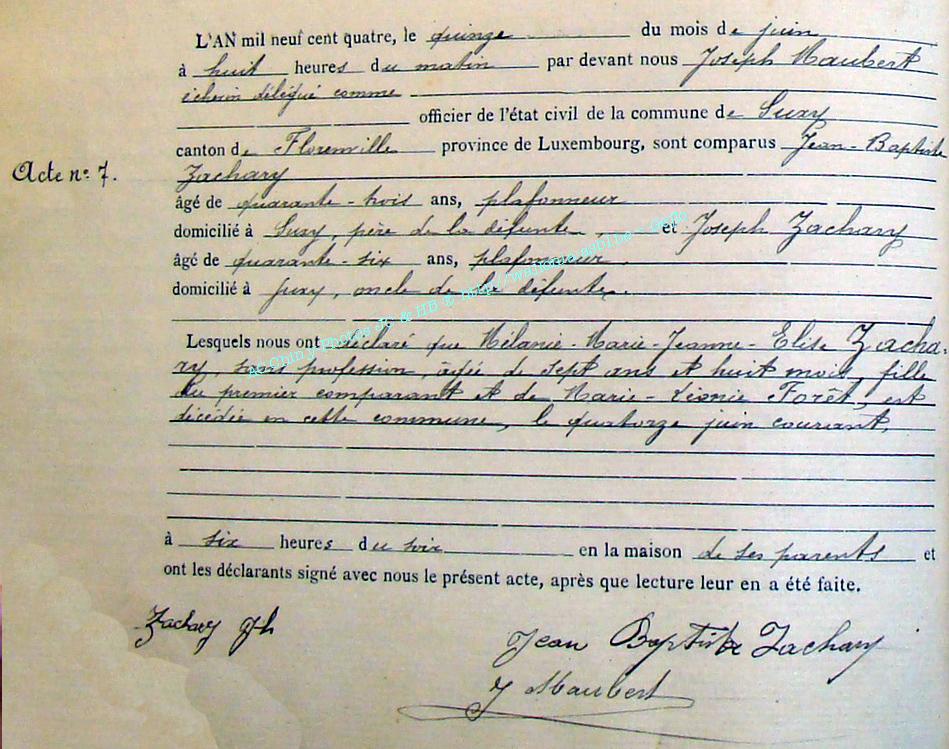 L'AN mil neuf cent quatre, le quinze du mois de juin
à huit heures du matin par devant nous Joseph Maubert
échevin délégué comme
officier de l'état civil de la commune de Suxy
canton de Florenville province de Luxembourg, sont comparus Jean-Baptiste
Acte nº 7.
Zachary
âgé de quarante-trois ans, plafonneur
domicilié à Suxy, père de la défunte, et Joseph Zachary
âgé de quarante-six ans, plafonneur,
domicilié à Suxy, oncle de la défunte.
Lesquels nous ont déclaré que Mélanie-Marie-Jeanne-Elise Zacha-
ry, sans profession, agée de sept ans et huit mois, fille
du premier comparant et de Marie-Léonie Forêt, est
décédée en cette commune, le quatorze juin courant,
à six heures du soir en la maison de ses parents et
ont les déclarants signé avec nous le présent acte, après que lecture leur en a été faite.
Zachary Jh
Jean Baptiste Zachary
J Maubert